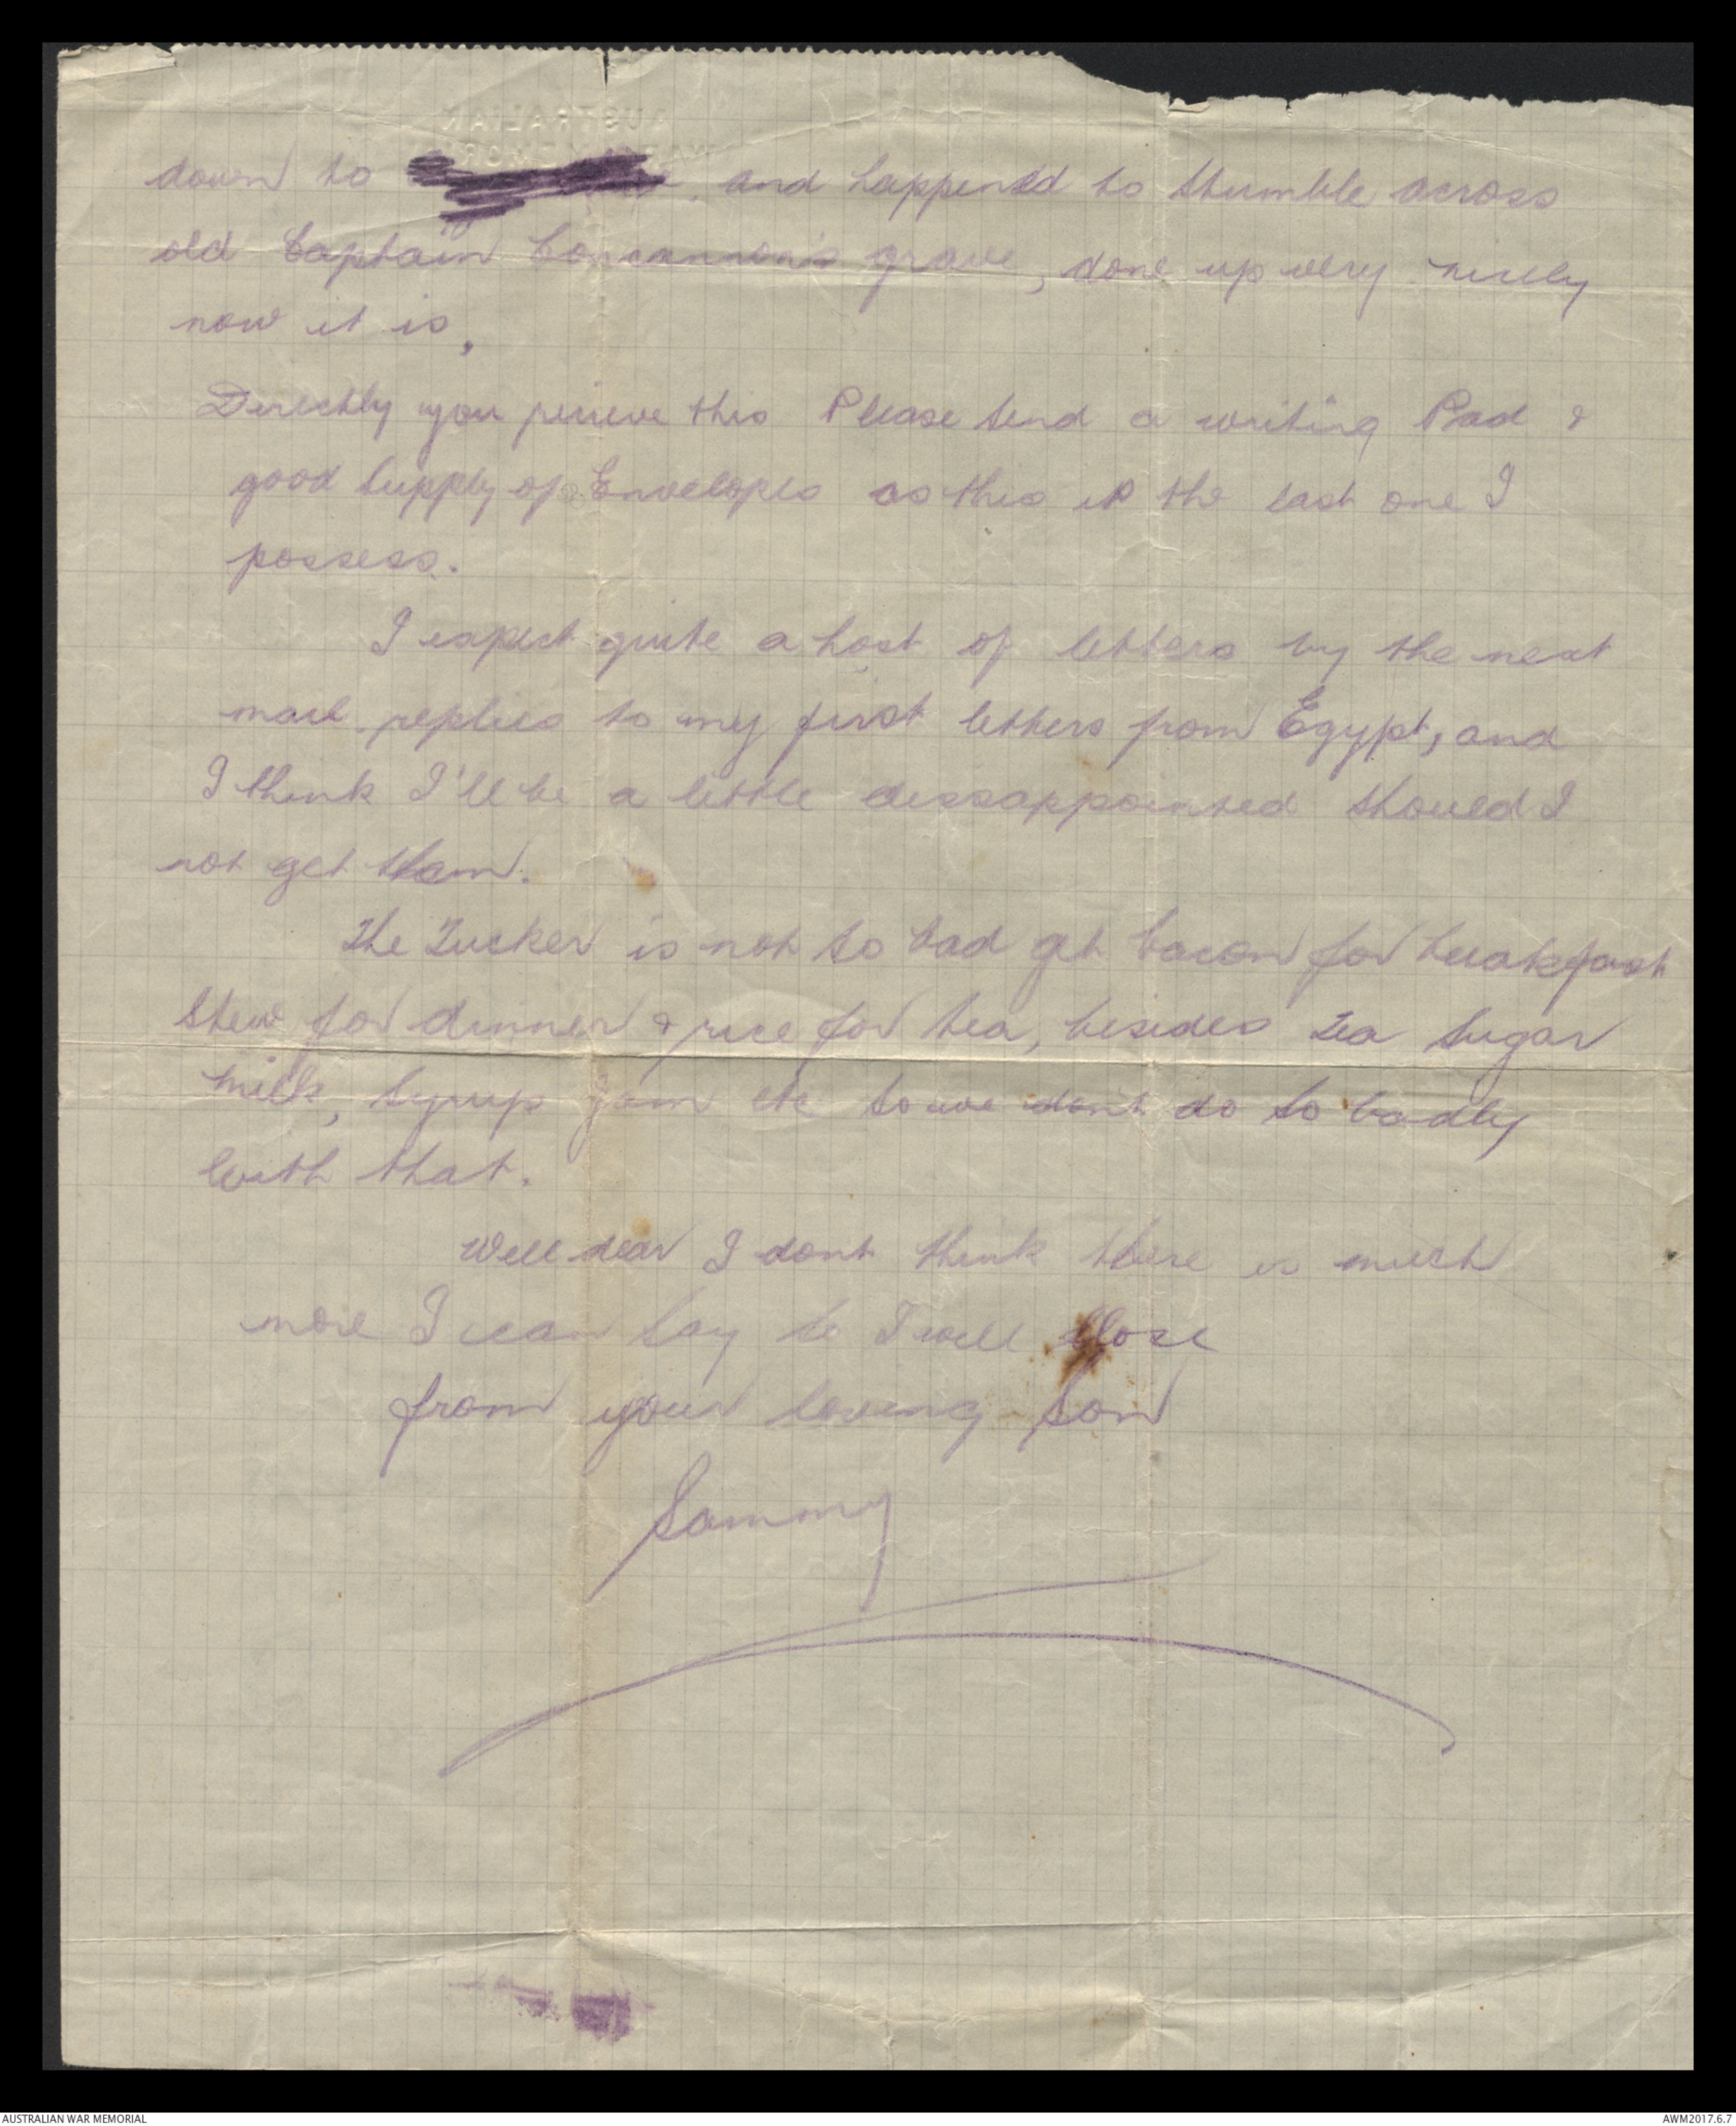 AUSTRALIAN
down to , and happened to stumble across
old Captain Concannon's grave, done up very nicely
now it is,
Directly you recieve this Please send a writing Pad &
good supply of Envelopes as this is the last one I
possess.
I expect quite a host of letters by the next
mail, replies to my first letters from Egypt, and
I think I'll be a little dissappointed should I
not get them.
The Tucker is not so bad get bacon for breakfast
stew for dinner & rice for tea, besides tea sugar
milk, syrup jam etc so we dont do to badly
with that.
Well dear I dont think there is much
more I can say so I will close
from your loving son
Sammy
AUSTRALIAN WAR MEMORIAL
AWM2017.6.7